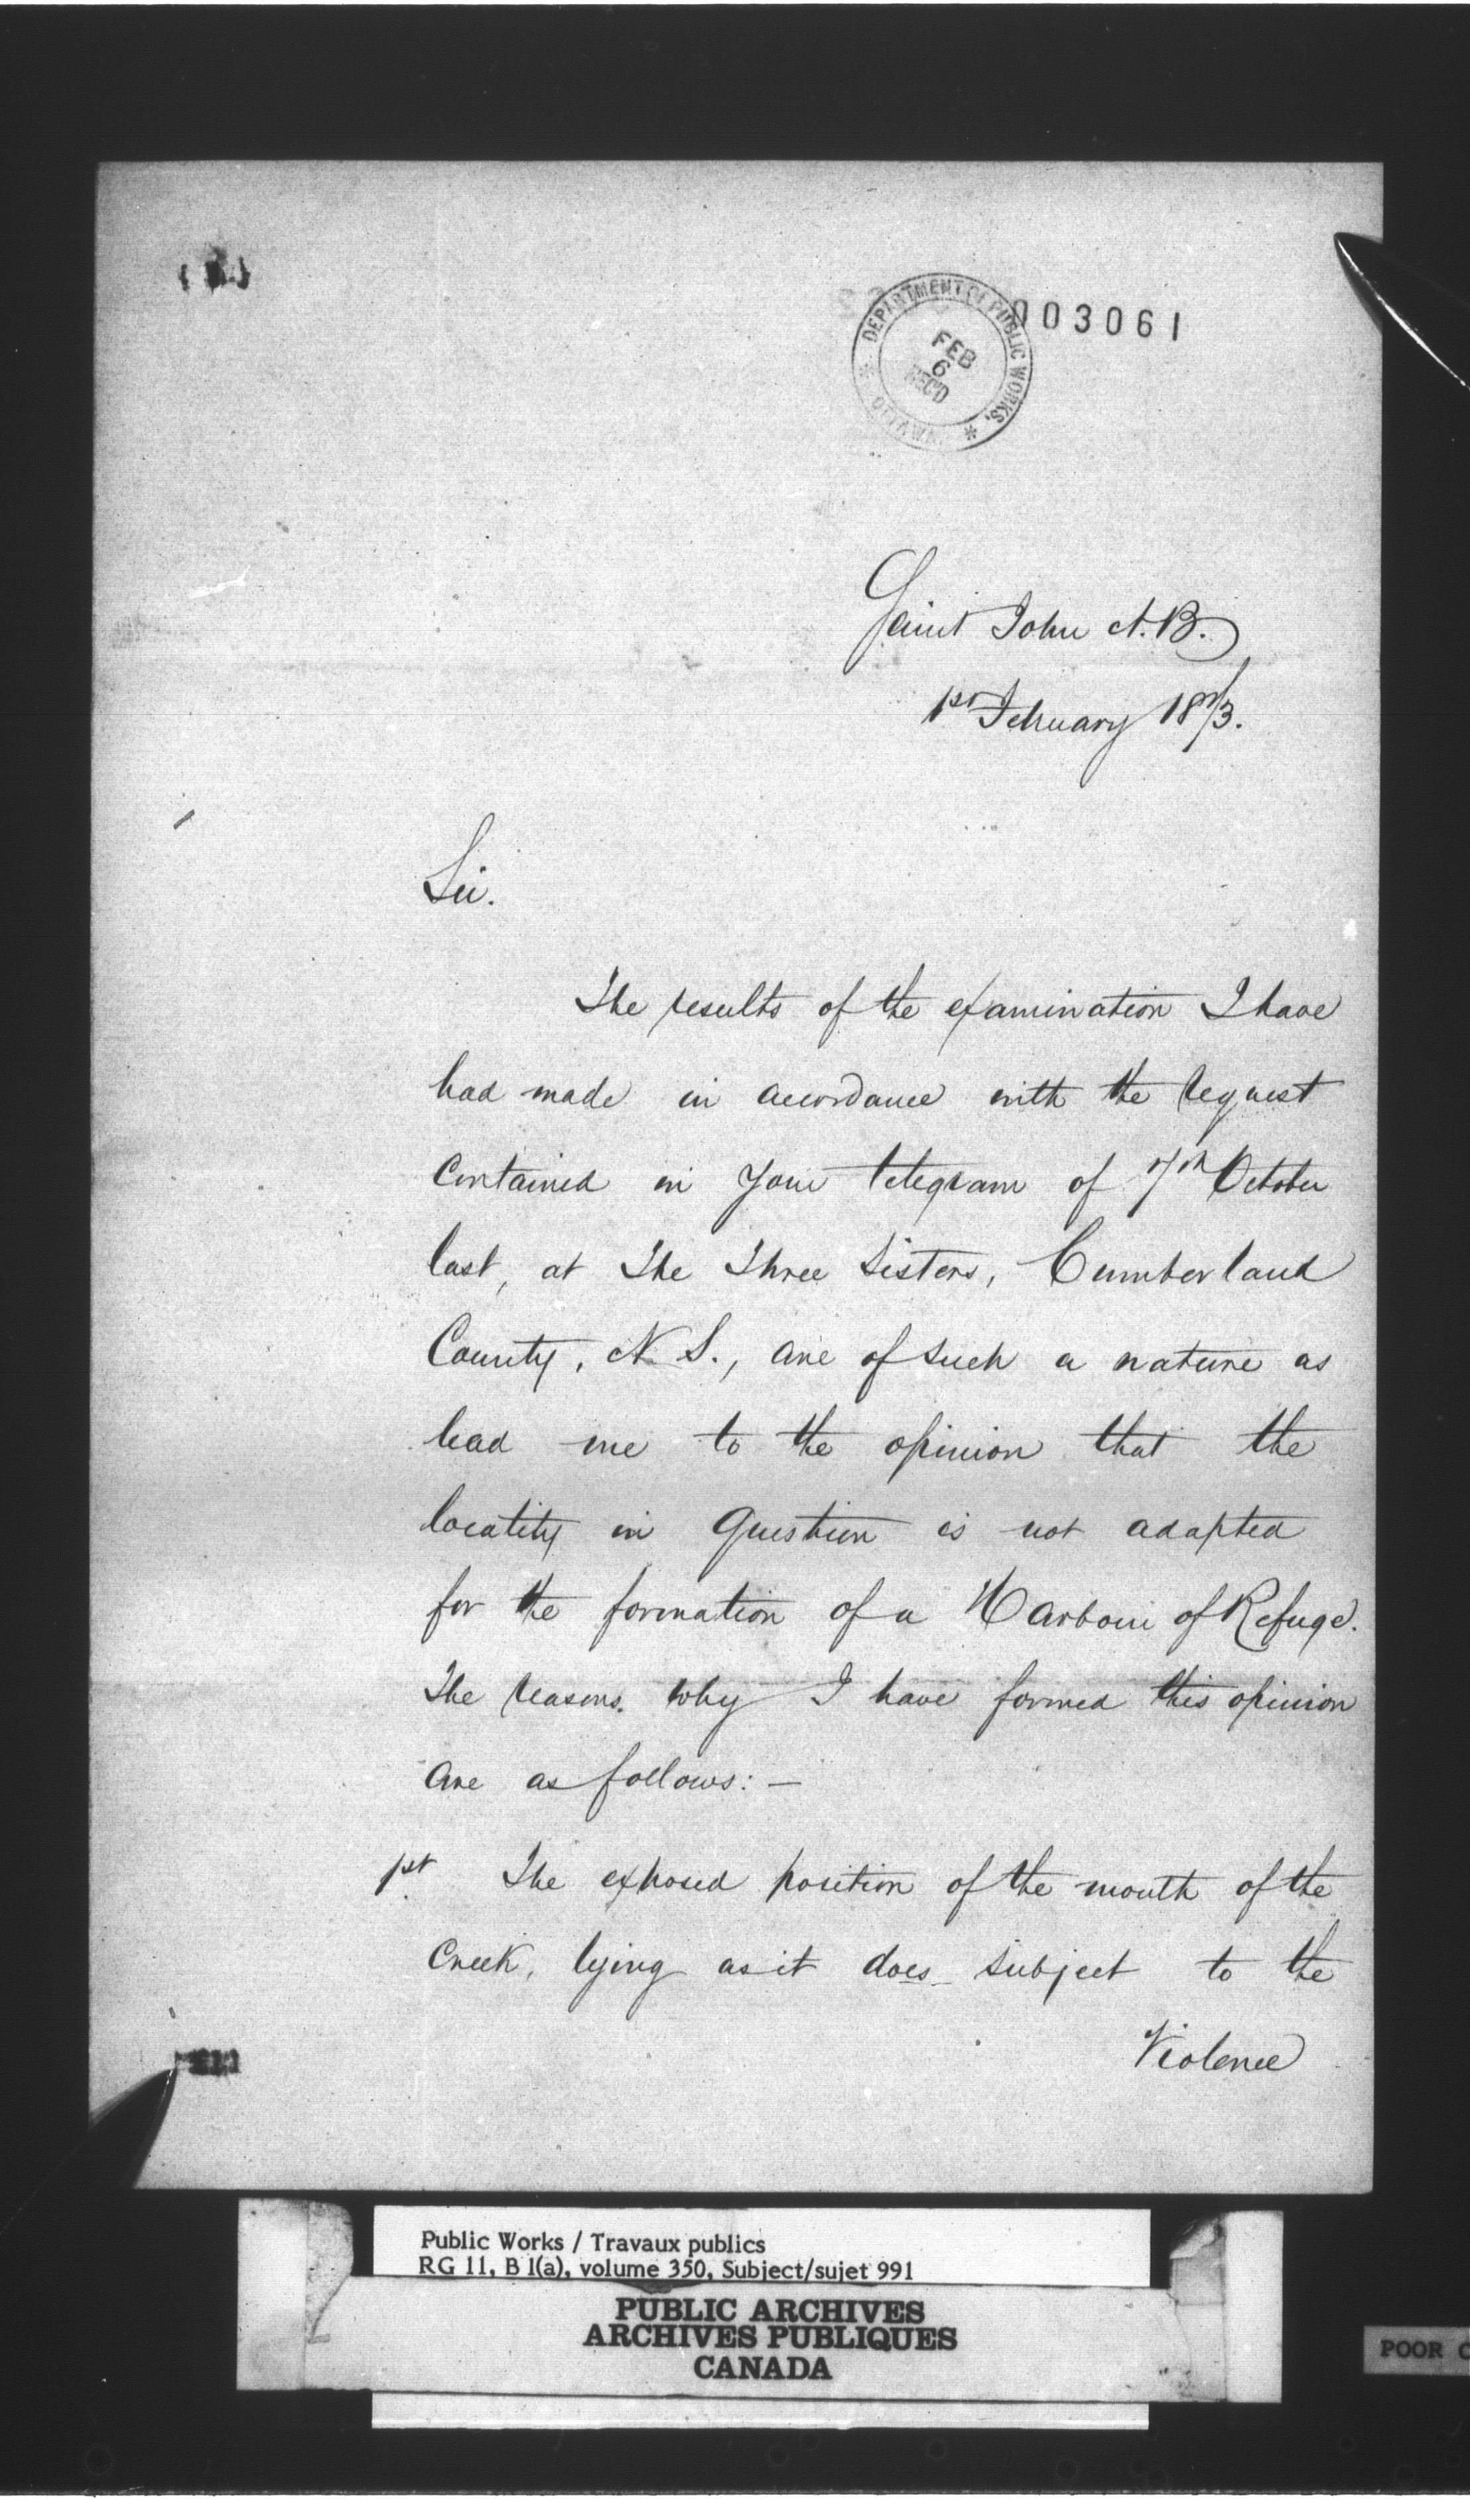 DEPARTMENT OF PUBLIC WORKS.
OTTAWA
FEB
6
REC'D
003061
Saint John N.B.
1st February 1873.
Sir.
The results of the examination I have
had made in accordance with the request
contained in your telegram of 7th October
last, at The Three Sisters, Cumberland
County, N.S., are of such a nature as
lead me to the opinion that the
locality in question is not adapted
for the formation of a Harbour of Refuge.
The reasons why I have formed this opinion
are as follows: —
1st The exposed position of the mouth of the
Creek, lying as it does subject to the
Violence
Public Works / Travaux publics
RG 11, B 1(a), volume 350, Subject/sujet 991
PUBLIC ARCHIVES
ARCHIVES PUBLIQUES
CANADA
POOR